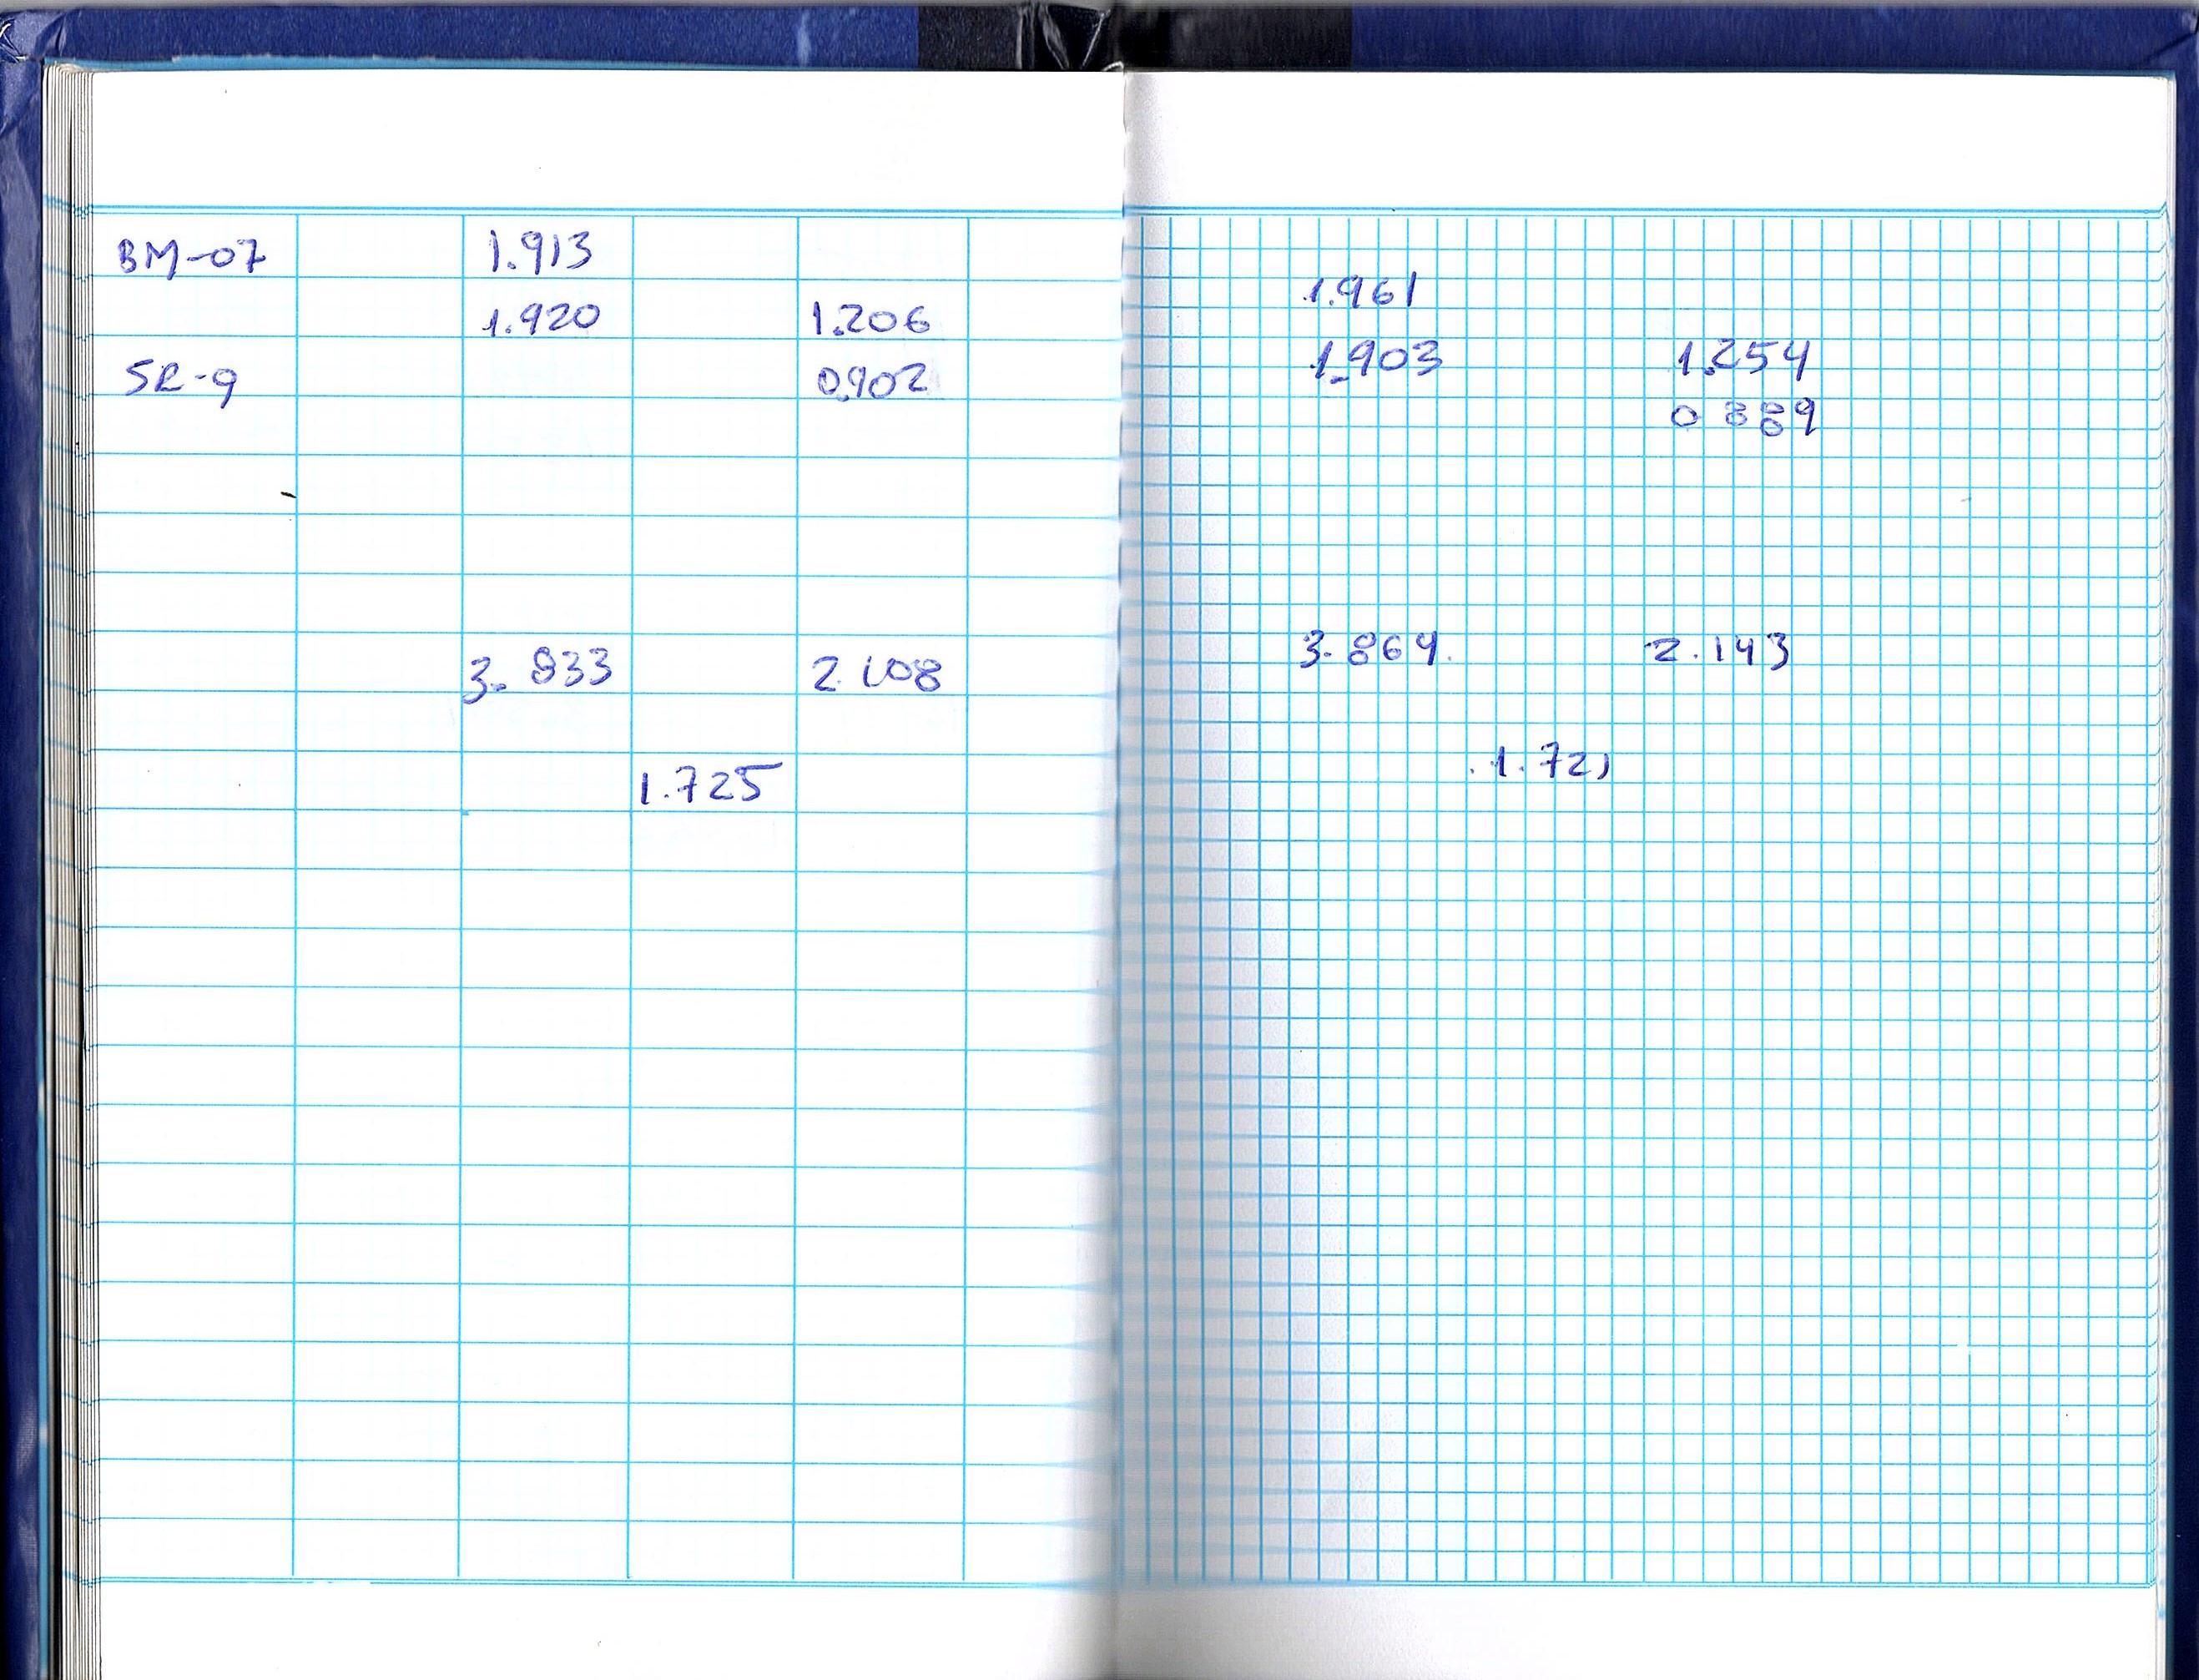 BM-07 1.913
1.920 1.206
SR-9 0.902
3.833 2.108
1.725
1.961
1.903 1.254
0 889
3.864. 2.143
.1.721